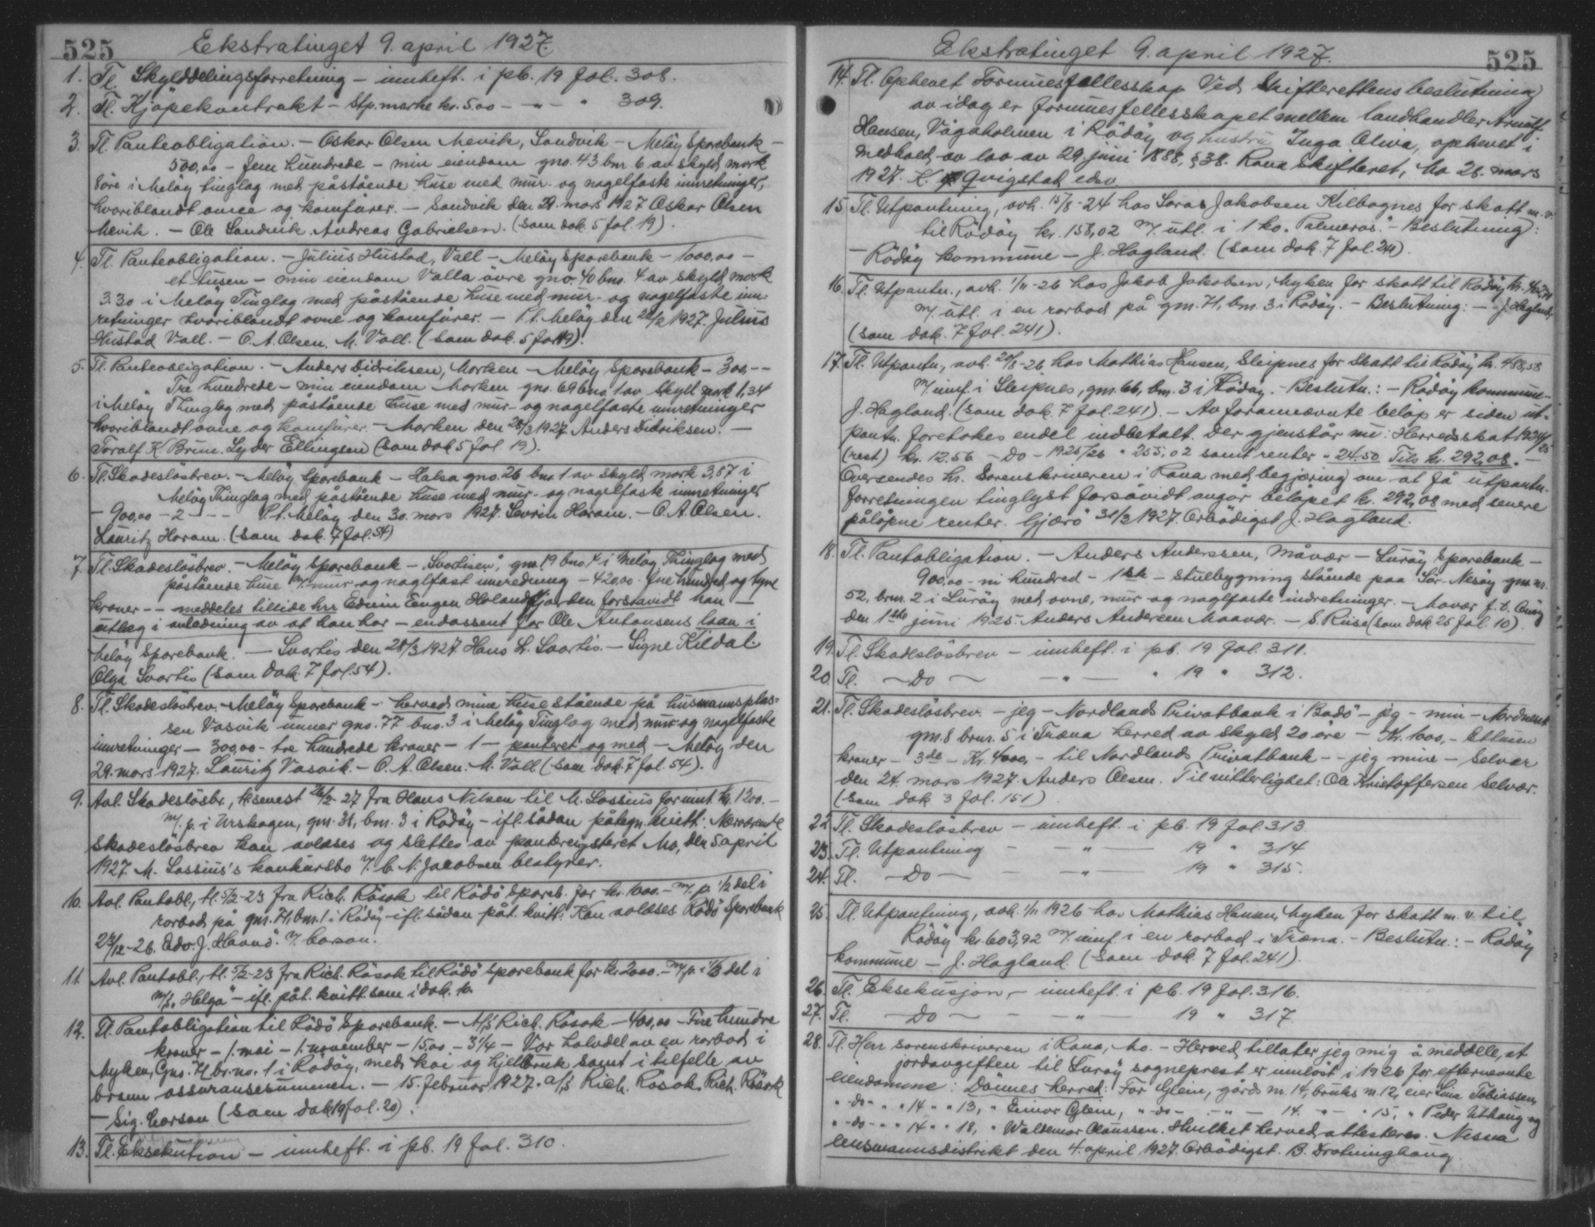 525 Ekstratinget 9. april 1927.
1. Tl. Skylddelingsforretning – innheft. i pb. 19 fol. 308.
2. Tl. Kjöpekontrakt – Stp.merke kr. 5.00 – " – " 309.
3. Tl. Panteobligation. – Oskar Olsen Mevik, Sandvik – Melöy Sparebank –
500,00 – fem hundrede – min eiendom gno. 43 bno. 6 av skyld mork
öre i Melöy tinglag med påstående huse med mur- og nagelfaste innretninger,
hvoriblandt ovne og komfürer. – Sandvik den 29. mars 1927 Oskar Olsen
Mevik. – Ole Sandvik Andreas Gabrielsen. (som dok. 5 fol. 19).
4. Tl. Panteobligation. – Julius Hustad, Vall – Melöy Sparebank – 1000,00 –
et tusen – min eiendom Valla övre gno. 40 bno. 4 av skyld mork
3.30 i Melöy Tinglag med påstående huse med mur- og nagelfaste inn-
retninger hvoriblandt ovne og komfürer. – P.t. Melöy den 26/2 1927. Julius
Hustad Vall. – O. A. Olsen. M. Vall. (som dok. 5 fol. 19).
5. Tl. Panteobligation. – Anders Didriksen, Morken – Melöy Sparebank – 300 – –
Tre hundrede – min eiendom Morken gno. 69 bno. 1 av skyld mork 1,34
i Melöy Thinglag med påstående huse med mur- og nagelfaste innretninger
hvoriblandt ovne og komfürer. – Morken den 26/3 1927 Anders Didriksen. –
Toralf K. Bruu. Lyder Ellingsen (som dok 5 fol 19).
6. Tl. Skadeslösbrev. – Melöy Sparebank – Halsa gno. 26 bno. 1 av skyld mork 3,57 i
Melöy Tinglag med påstående huse med mur- og nagelfaste innretninger
– 900,00 – 2 – – – P.t. Melöy den 30. mars 1927. Sevrin Haram. – O. A. Olsen.
Lauritz Horam. (som dok. 7 fol. 54)
7. Tl. Skadeslösbrev. – Melöy Sparebank – "Svartisen", gno. 19 bno. 4 i Melöy Thinglag med
påstående huse m/ mur- og naglfast innredning – 420,00 – fire hundred og tyve
kroner – – meddeles tillike hr. Edvin Eugen Holand, for den forsaavidt han –
utlæg i anledning av at han har – endossent for Ole Antonsens laan i
Melöy Sparebank. – Svartis den 28/3 1927 Hans L. Svartis. – Signe Kildal
Olga Svartis (som dok. 7 fol. 54).
8. Tl. Skadeslösbrev. – Melöy Sparebank – herved mine huse stående på husmannsplas-
sen Vasvik under gno. 77 bno. 3 i Melöy Tinglag med mur- og nagelfaste
innretninger – 300,00 – tre hundrede kroner – 1 – panteret og med – Melöy den
29. mars 1927. Lauritz Vasvik. – O. A. Olsen. M. Vall (som dok. 7 fol. 54).
9. Avl. Skadeslösbr., tl. senest 26/2-27 fra Hans Nilsen til M. Lossius for innt. kr. 1200. –
m/ p. i Urskogen, gno. 31, bno. 3 i Rödöy – ifl. sådan påtegn. kvitt.: Nærværende
Skadeslösbrev kan avleses og slettes av panteregisteret. Mo, den 5. april
1927. M. Lossius's konkursbo v/ C. N. Jacobsen bestyrer.
10. Avl. Pantobl., tl. 5/2-23 fra Rich. Råsok til Rödö Spareb. for kr. 1000. – m/ p. 1/2 del i
rorbod på gno. 71, bno. 1 i Rödöy – ifl. sådan påt. kvitt.: Kan avleses Rödö Sparebank
23/12-26. Edv. J. Haanö. Carson.
11. Avl. Pantobl., tl. 5/2-23 fra Rich. Råsok til Rödö Sparebank for kr. 2000. – m/ p. i 1/3 del i
m/s. "Helga" – ifl. påt. kvitt. som i dok. 10.
12. Tl. Pantobligation til Rödö Sparebank. – A/S Rich. Råsok – 400,00 – Fire hundre
kroner – 1. mai – 1. november – 15,00 – 3 1/4 – Vor halvdel av en rorbod i
Myken, Gno. 71 br. no. 1 i Rödöy, med kai og hjellbruk samt i tilfelle av
brann assuransesummen. – 15. februar 1927. A/S Rich. Råsok Rich. Råsok
– Sig. Carson (som dok 19 fol. 20).
13. Tl. Eksekution – innheft. i pb. 19 fol. 310.
Ekstratinget 9. april 1927. 525
14. Tl. Ophevet Formuesfellesskap Ved Skifterettens beslutning
av idag er formuesfellesskapet mellem landhandler Arnulf
Hansen, Vågaholmen i Rödöy og hustru Inga Oliva, ophevet i
medhold av lov av 29. juni 1888, § 38. Rana Skifterett, Mo 28. mars
1927. K. Qvigstad edsv.
15. Tl. Utpantning, avh. 15/8-24 hos Soras Jakobsen Kilbognes for skatt m. v.
til Rödöy kr. 158,02 m/ utl. i 1 ko. "Palmeros". – Beslutning:
– Rödöy kommune – J. Hagland. (som dok. 7 fol. 241).
16. Tl. Utpantn., avh. 1/11-26 hos Jakob Jakobsen, Myken for skatt til Rödöy kr.
m/ utl. i en rorbod på gno. 71, bno. 3 i Rödöy. – Beslutning: – J. Hagland.
(som dok. 7 fol. 241).
17. Tl. Utpantn., avh. 24/8-26, hos Mathias Hansen, Sleipnes for Skatt til Rödöy kr. 488,58
m/ innf. i Sleipnes, gno. 66, bno. 3 i Rödöy. – Beslutn.: – Rödöy kommune –
J. Hagland. (som dok. 7 fol. 241). – Av forannevnte belöp er siden ut-
pantn. foretokes endel indbetalt. Der gjenstår nu: Herredsskat 1924/25
(rest) kr. 12.56 – Do – 1925/26 " 255,02 samt renter " 24.50 Tils. kr. 292,08. –
Oversendes hr. Sorenskriveren i Rana med begjæring om at få utpantn.-
forretningen tinglyst forsåvidt angår belöpet kr. 292,08 med senere
pålöpne renter. Gjærö 31/3 1927. Ærbödigst J. Hagland.
18. Tl. Pantobligation. – Anders Anderssen, Måvær – Luröy Sparebank –
900,00 – ni hundred – 1ste – Stulbygning stående paa Sör-Nesöy gno. no.
52, brno. 2 i Luröy med ovne, mur og naglfaste indretninger. – Maavær p.t. Luröy
den 1ste juni 1925. Anders Andersen Maavær. – S. Riise (som dok 25 fol. 10).
19. Tl. Skadeslösbrev – innheft. i pb. 19 fol. 311.
20. Tl. – Do – – " – " 19 " 312.
21. Tl. Skadeslösbrev – jeg – Nordlands Privatbank i Bodö – jeg – min – Nordneset
gno. 8 brno. 5 i Træna herred av skyld 20 öre – Kr. 1000,- Et tusen
kroner – 3die – Kr. 4000,- til Nordlands Privatbank – – jeg mine – Selvær
den 24. mars 1927. Anders Olsen. Til vitterlighet: Ole Kristoffersen Selvær.
(som dok 3 fol. 151)
22. Tl. Skadeslösbrev – innheft. i pb. 19 fol. 313
23. Tl. Utpantning – – " – 19 " 314
24. Tl. – Do – – " – 19 " 315.
25. Tl. Utpantning, avh. 1/11 1926 hos Mathias Hansen, Myken for skatt m. v. til
Rödöy kr 603,92 m/ innf. i en rorbod i Træna. – Beslutn.: – Rödöy
kommune – J. Hagland. (som dok. 7 fol. 241).
26. Tl. Eksekusjon – innheft. i pb. 19 fol. 316.
27. Tl. – Do – – " – 19 " 317
28. Tl. Herr sorenskriveren i Rana, Mo. – Herved tillater jeg mig å meddele, at
jordavgiften til Luröy sogneprest er innlöst i 1926 for efternevnte
eiendomme: Dönnes herred: For Glein, gårds nr. 14, bruks nr. 12, eier Lina Tobiassen,
" – do – " " 14 " " 13, " Einar Glein, " – do – " – " – 14. " – " 15, " Peder Uthaug og
" – do – " " 14 " " 18, " Waldemar Clausen. Hvilket herved attesteres. Nesna
lensmannsdistrikt den 4. april 1927. Ærbödigst. B. Drotninghaug.